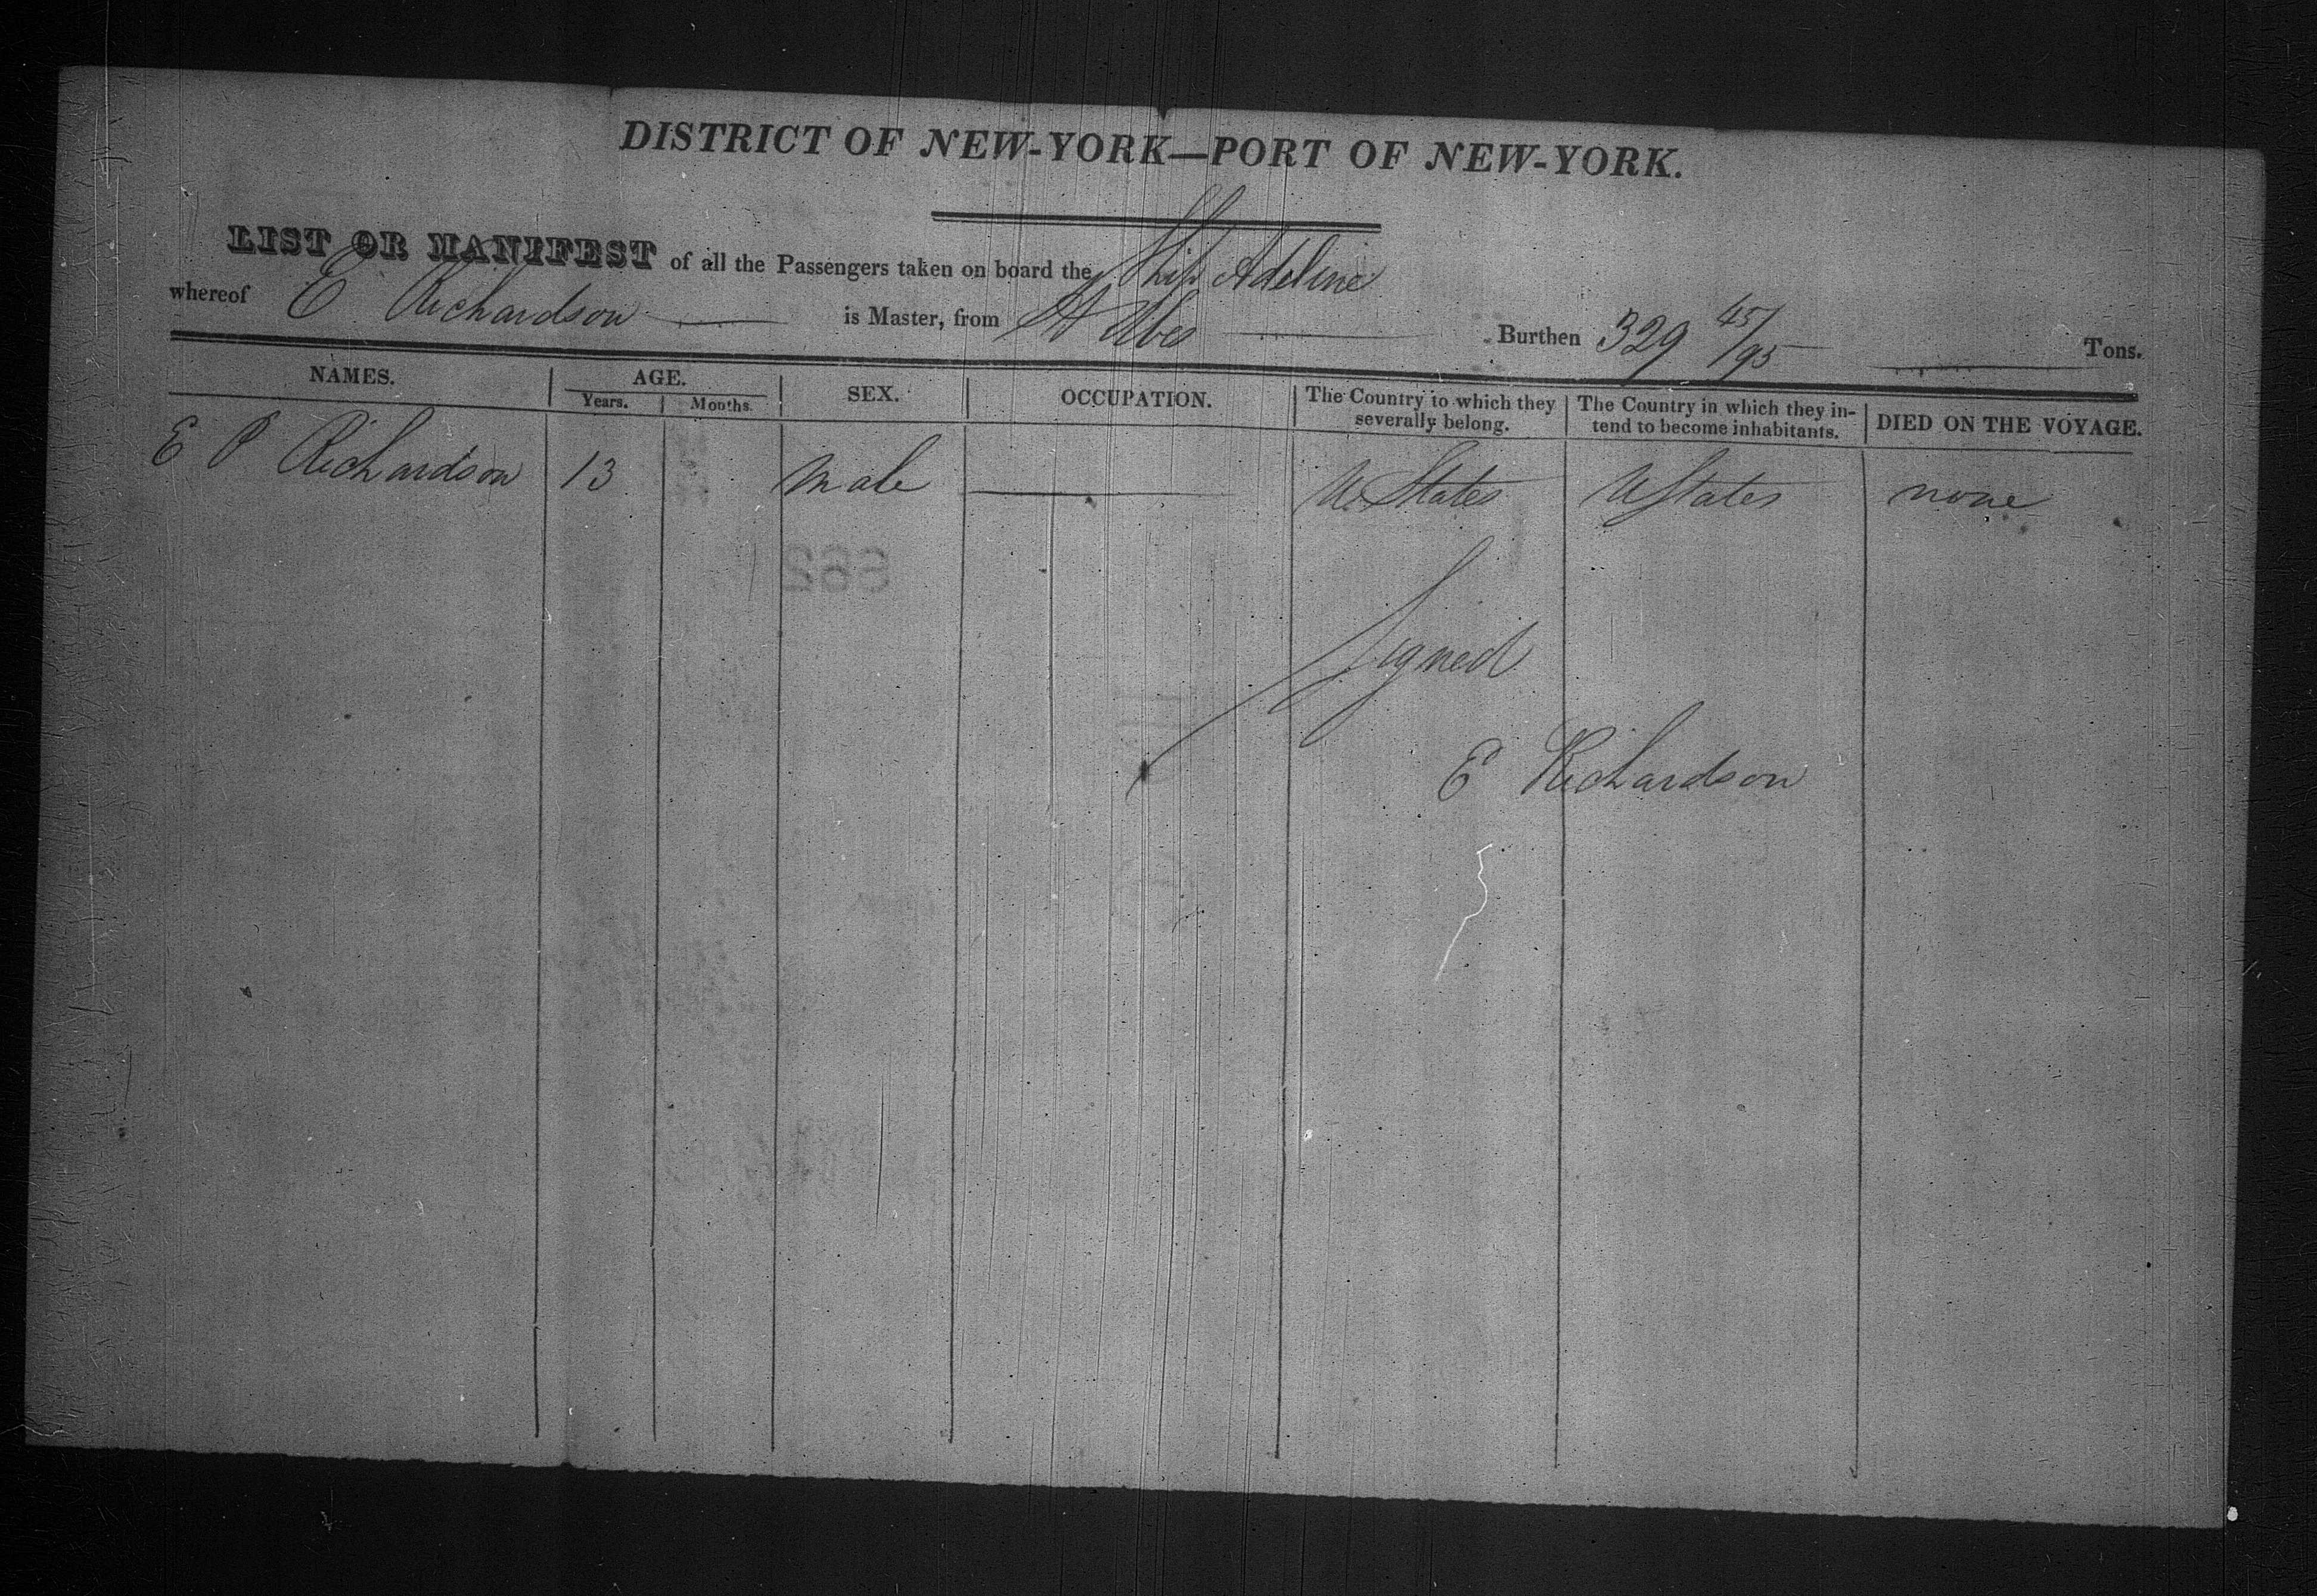 DISTRICT OF NEW-YORK—PORT OF NEW-YORK.
LIST OR MANIFEST of all the Passengers taken on board the Ship Adeline
whereof E Richardson is Master, from St Ubes Burthen 329 45/95 Tons.
NAMES. AGE. SEX. OCCUPATION. The Country to which they severally belong. The Country in which they intend to become inhabitants. DIED ON THE VOYAGE.
Years. Months.
E P Richardson 13 male — U. States U States none
Signed
E Richardson